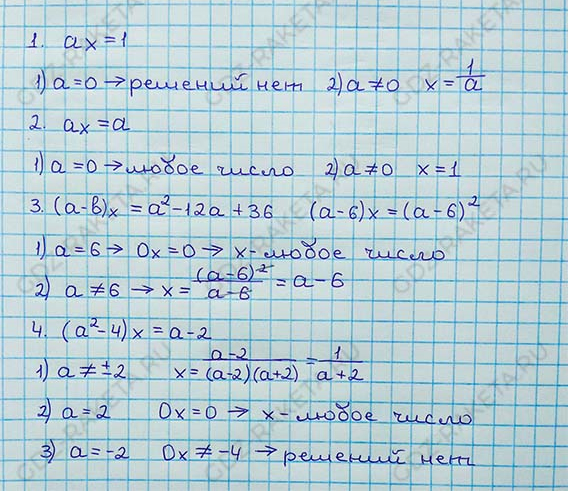 1. ax=1
1) a=0 → решений нет 2) a≠0 x=1/a
2. ax=a
1) a=0 → любое число 2) a≠0 x=1
3. (a-в)x = a²-12a+36 (a-6)x=(a-6)²
1) a=6 → 0x=0 → x-любое число
2) a≠6 → x=(a-6)²/(a-6)=a-6
4. (a²-4)x=a-2
1) a≠±2 x=(a-2)/(a-2)(a+2)=1/(a+2)
2) a=2 0x=0 → x-любое число
3) a=-2 0x≠-4 → решений нет
GDZ-RAKETA.RU